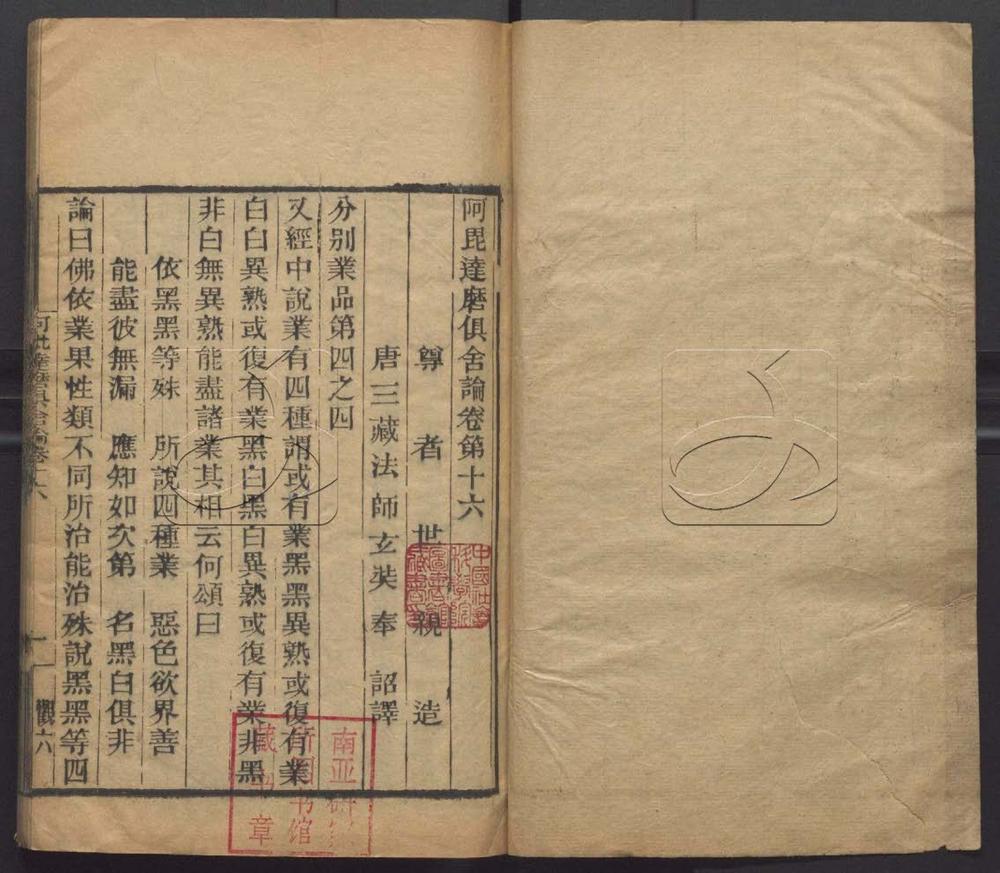 阿毘達磨俱舍論卷第十六
尊者世親造
唐三藏法師玄奘奉 詔譯
分別業品第四之四
又經中說業有四種謂或有業黑黑異熟或復有業
白白異熟或復有業黑白黑白異熟或復有業非黑
非白無異熟能盡諸業其相云何頌曰
依黑黑等殊 所說四種業 惡色欲界善
能盡彼無漏 應知如次第 名黑白俱非
論曰佛依業果性類不同所治能治殊說黑黑等四
阿毘達磨俱舍論卷十六
一
觀六
中國社會
科學院
圖書館
藏書
南亚研
所图书馆
藏书章